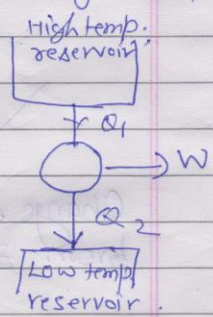 High temp.
reservoir
Q1
W
Q2
Low temp
reservoir.